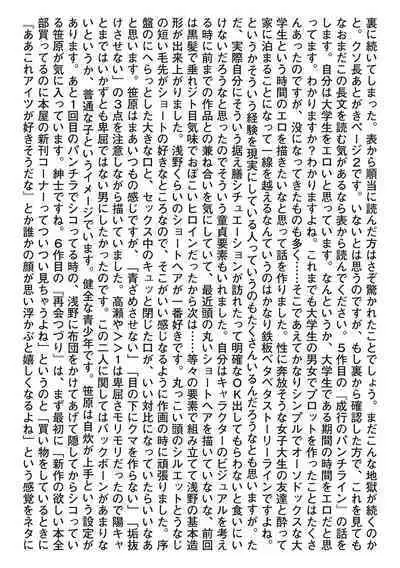 裏に続いてしまった。表から順当に読んだ方はさぞ驚かれたことでしょう。まだこんな地獄が続くのか
と。クソ長あとがきページ2です。いないとは思うのですが、もし裏から確認した方で、これを見ても
なおまだこの長文を読む気があるなら表から読んでください。5作目の「成行のパンチライン」の話を
します。自分は大学生をエロいと思っています。なんというか、大学生である期間の時間をエロだと思
ってます。わかりますか?わかりますよね。これまでも大学生の男女でプロットを作ったことはたくさ
んあったのですが、没になってきたものも多く……そこであえてかなりシンプルでオーソドックスな大
学生という時間のエロを描きたいなと思って話を作りました。性に奔放そうな女子大生の友達と酔って
家に泊まることになって一線を越えるなんていうのはかなり鉄板ベタベタストーリーラインですよね。
というかそういう経験を現実にしている人っていうのもたくさんいるんだろうなとも思いますが。た
だ、実際自分にそういう据え膳シチュエーションが訪れたって明確なOK出してもらわないと食いにい
けないだろうなと思ったのでそういう童貞要素もいれました。自分はキャラクターのビジュアルを考え
る時に前までの作品との兼ね合いを気にしていて、最近頭の丸いショートヘアを描いていないな、前回
は黒髪で垂れジト目気味でおぼこいヒロインだったから次は……等々の要素で組み立てて浅野の基本造
形が出来上がりました。浅野くらいのショートヘアが一番好きです。丸っこい頭のシルエットとうなじ
の短い毛先がショートの好きなところなので、そこがいい感じなるように作画の時に頑張りました。序
盤のにへらっとした大きな口と、セックス中のキュッと閉じた口が、いい対比になっていたらいいなあ
と思います。笹原はまあいつもの感じですが、「青ざめさせない」「目の下にクマを作らない」「垢抜
けさせない」の3点を注意しながら描いていました。高瀬や>>1は卑屈さモリモリだったので陽キャ
とまではいかずとも卑屈ではない男にしたかったのです。この二人に関してはバックボーンがあまりな
いというか、普通な子というイメージでいます。健全な青少年です。笹原は自炊が上手という設定が
あります。あと1回目のパンチラでシコってる時、浅野に布団をかけてあげて隠してからシコってい
る笹原が気に入っています。紳士ですね。6作目の「再会つづり」は、まず最初に「新作の欲しい本全
部買ってるのに本屋の新刊コーナーってついつい見ちゃうよね」というのと「買い物をしているときに
『ああこれアイツが好きそうだな』とか誰かの顔が思い浮かぶと嬉しくなるよね」という感覚をネタに